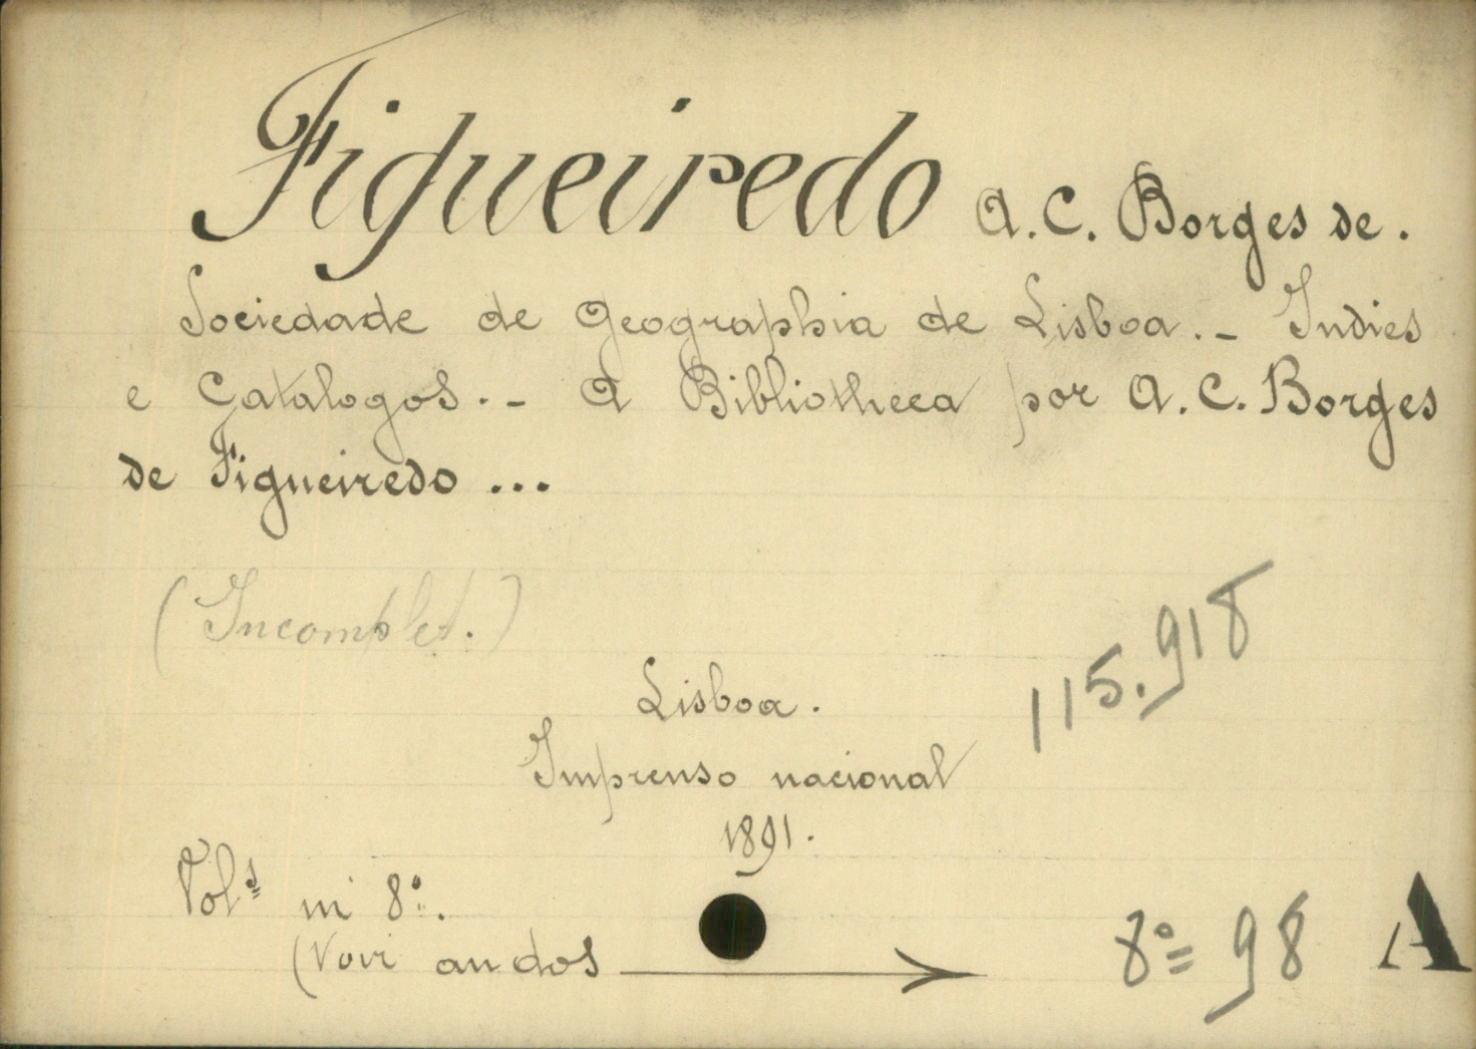 Figueiredo A. C. Borges de.
Sociedade de Geographia de Lisboa. - Indies
e Catalogos. - A Bibliotheca por A. C. Borges
de Figueiredo ...
(Incomplet.)
115.918
Lisboa.
Imprenso nacional
1891.
Vols in 8º.
(Voir au dos
8º 98 A